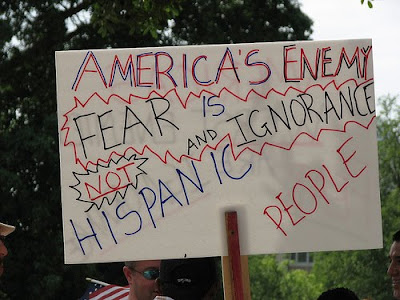 AMERICA'S ENEMY
IS
FEAR AND IGNORANCE
NOT
HISPANIC
PEOPLE